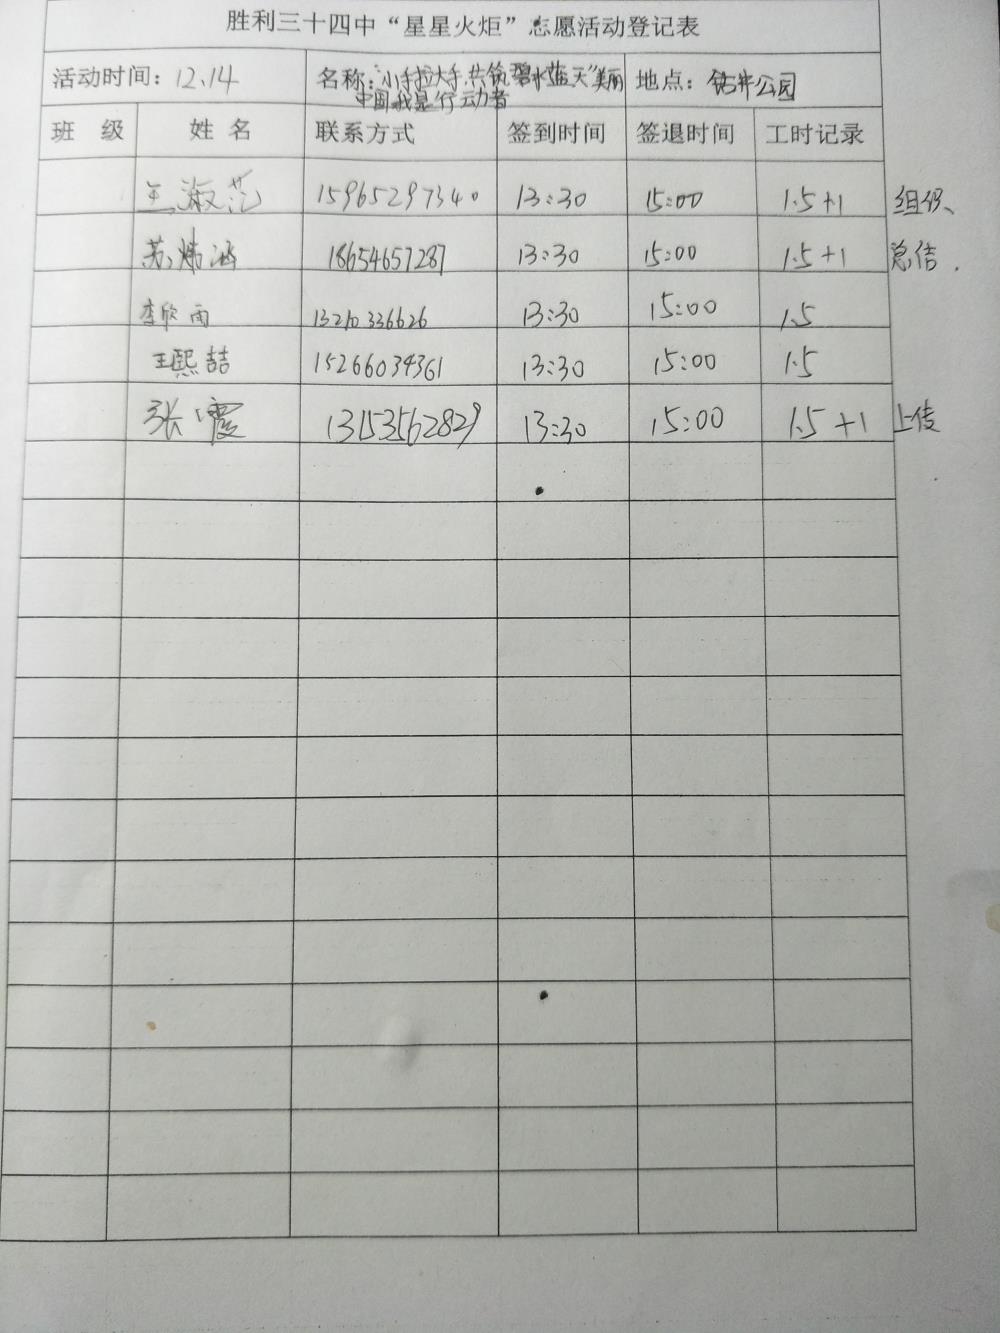 胜利三十四中“星星火炬”志愿活动登记表
活动时间：12.14 名称：“小手拉大手,共筑碧水蓝天”美丽 地点：钻井公园
中国我是行动者
班 级 姓 名 联系方式 签到时间 签退时间 工时记录
王淑范 15965297340 13:30 15:00 1.5+1 组织、
苏炜涵 18654657287 13:30 15:00 1.5+1 总结.
李欣雨 13210336626 13:30 15:00 1.5
王熙喆 15266034361 13:30 15:00 1.5
张震 13153562829 13:30 15:00 1.5+1 上传